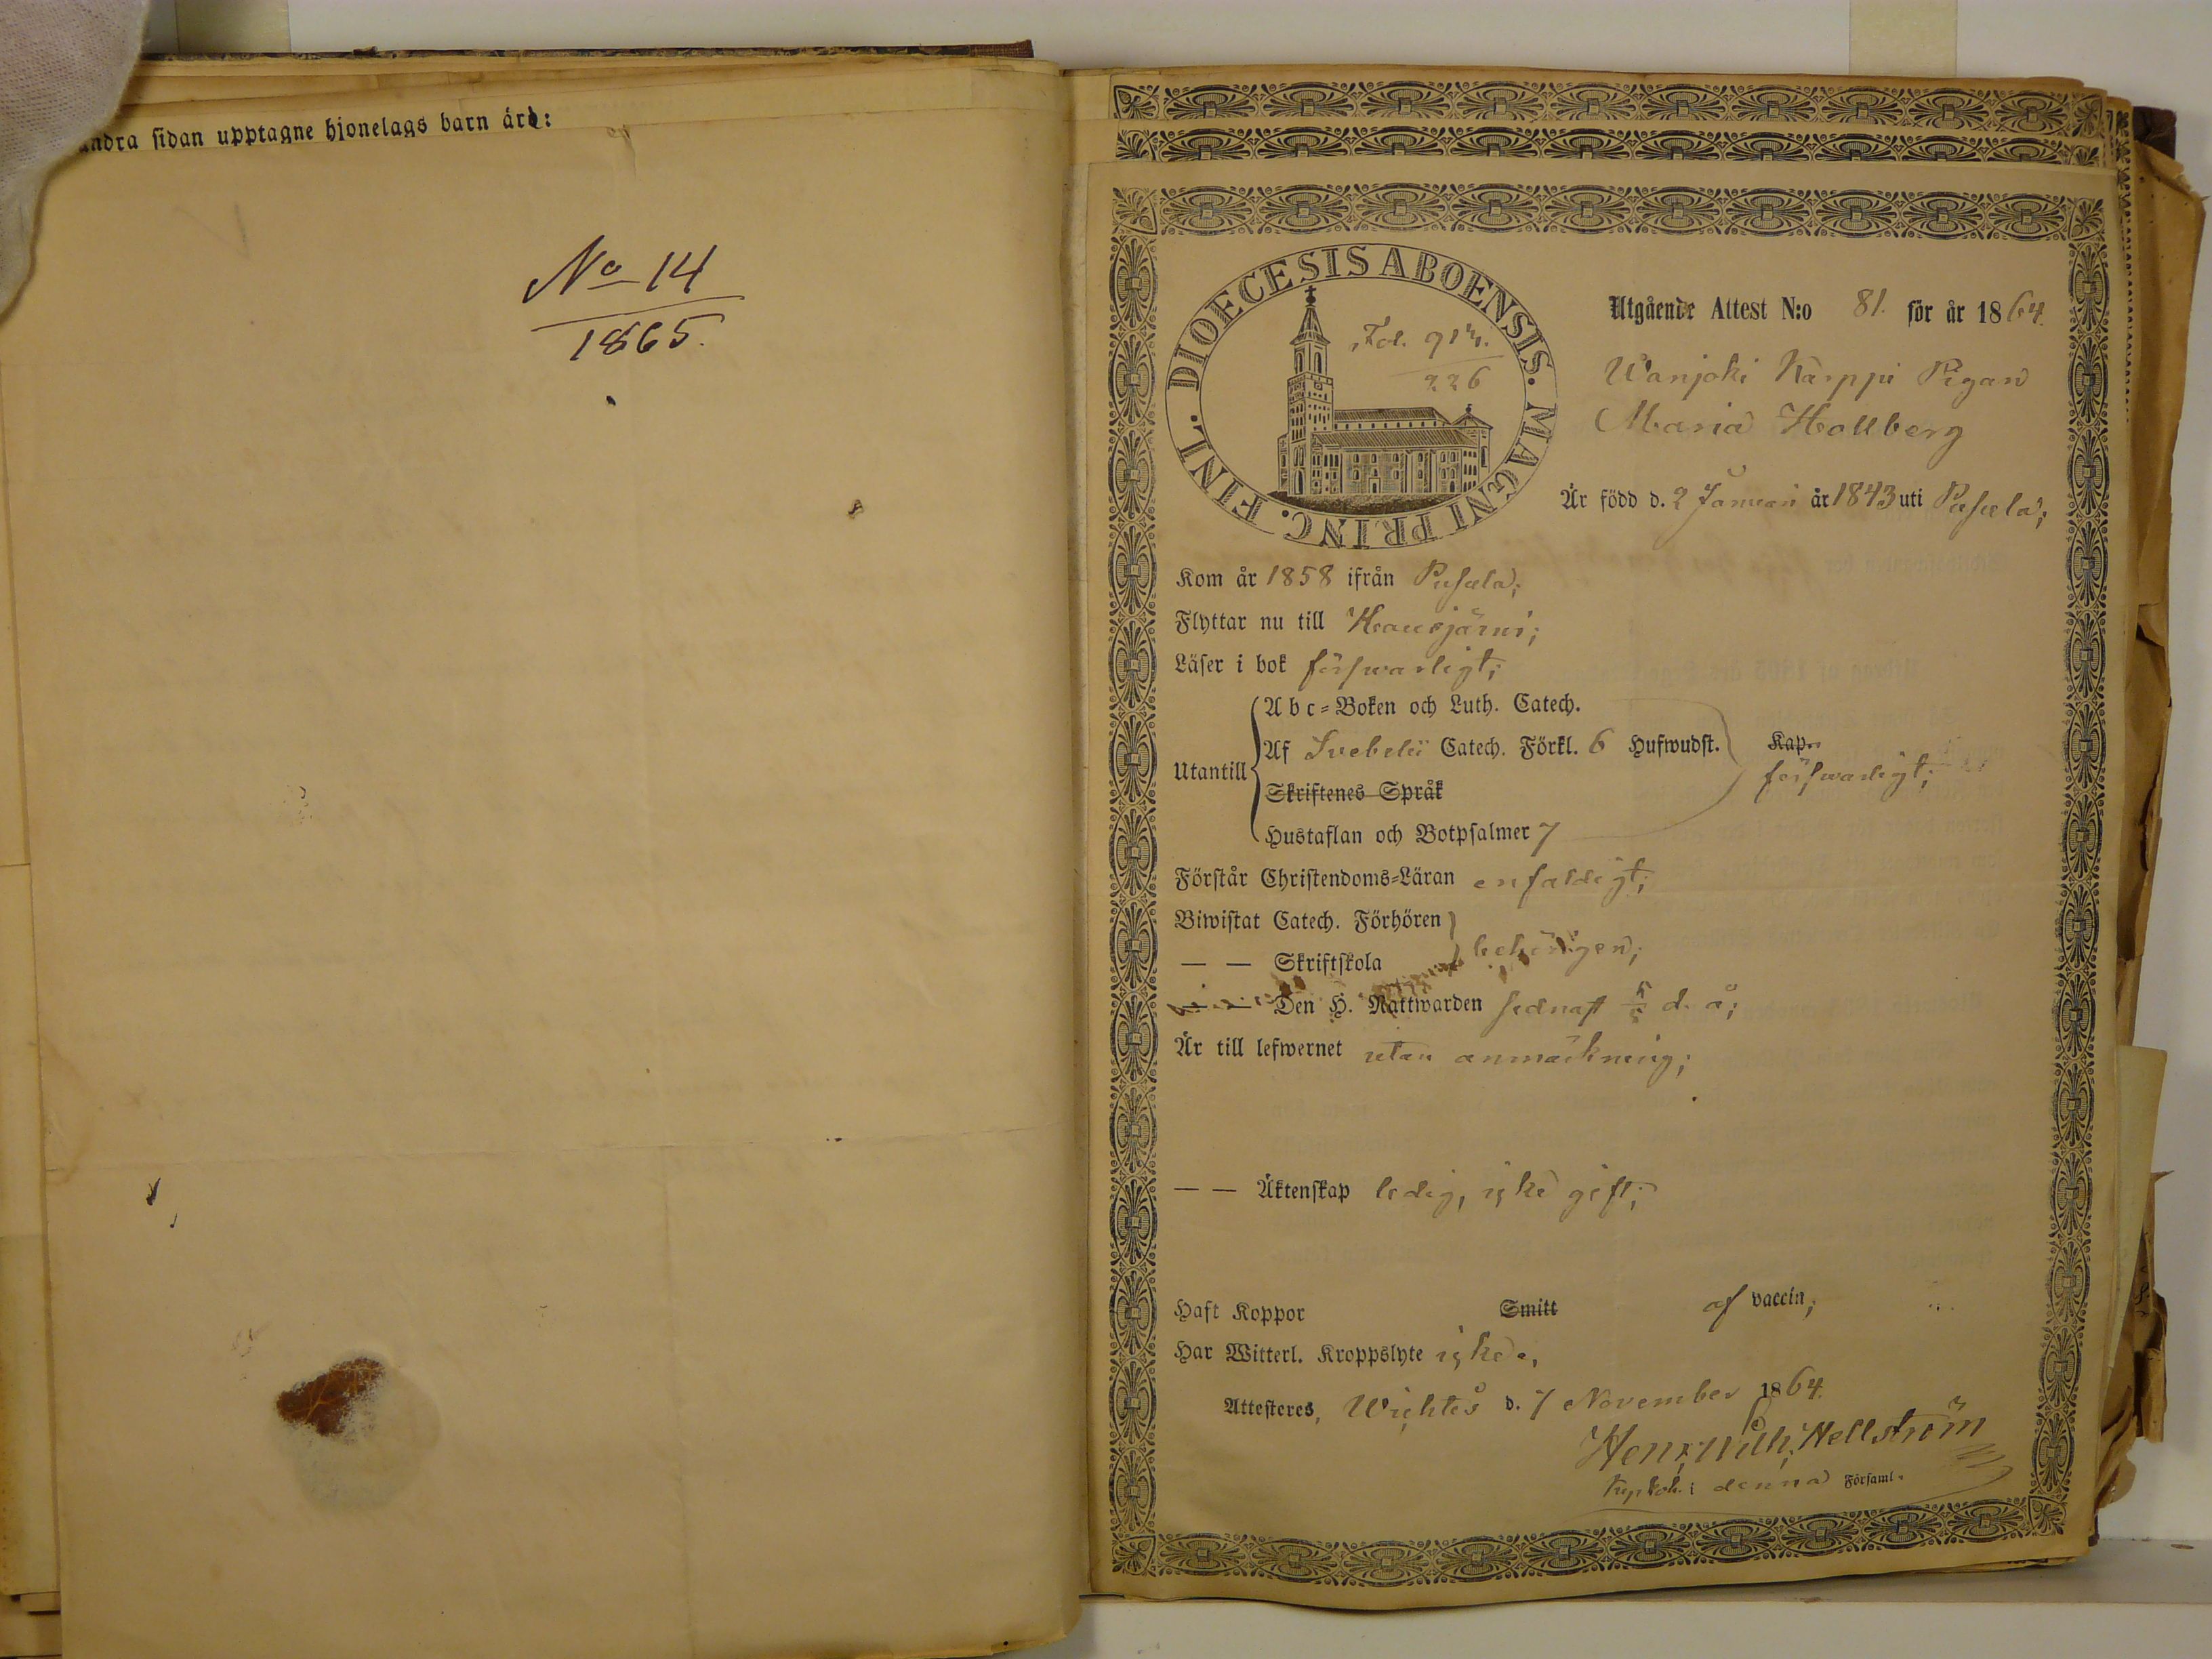 andra sidan upptagne hjonelags barn äro:
No 14
1865.
DIOECESIS ABOENSIS. MAGNI PRINC. FINL.
Fol. 914.
226
Utgående Attest N:o 81. för år 1864.
Wanjoki Karppi Pigan
Maria Hallberg
Är född d. 2 Januari år 1843 uti Pusula;
Kom år 1858 ifrån Pusula;
Flyttar nu till Hausjärvi;
Läser i bok förswarligt;
Utantill
Abc-Boken och Luth. Catech.
Af Svebelii Catech. Förkl. 6 Hufwudst. Kap.
förswarligt;
Skriftenes Språk
Hustaflan och Botpsalmer 7
Förstår Christendoms-Läran enfaldigt;
Biwistat Catech. Förhören
— — Skriftskola behörigen;
— — Den H. Nattwarden sednast d. å;
Är till lefwernet utan anmärkning;
— — Äktenskap ledig, icke gift;
Haft Koppor Smitt af vaccin;
Har Witterl. Kroppslyte icke.
Attesteres, Wichtis d. 7 November 1864.
Henr. Wilh. Hellström
i denna Församl.